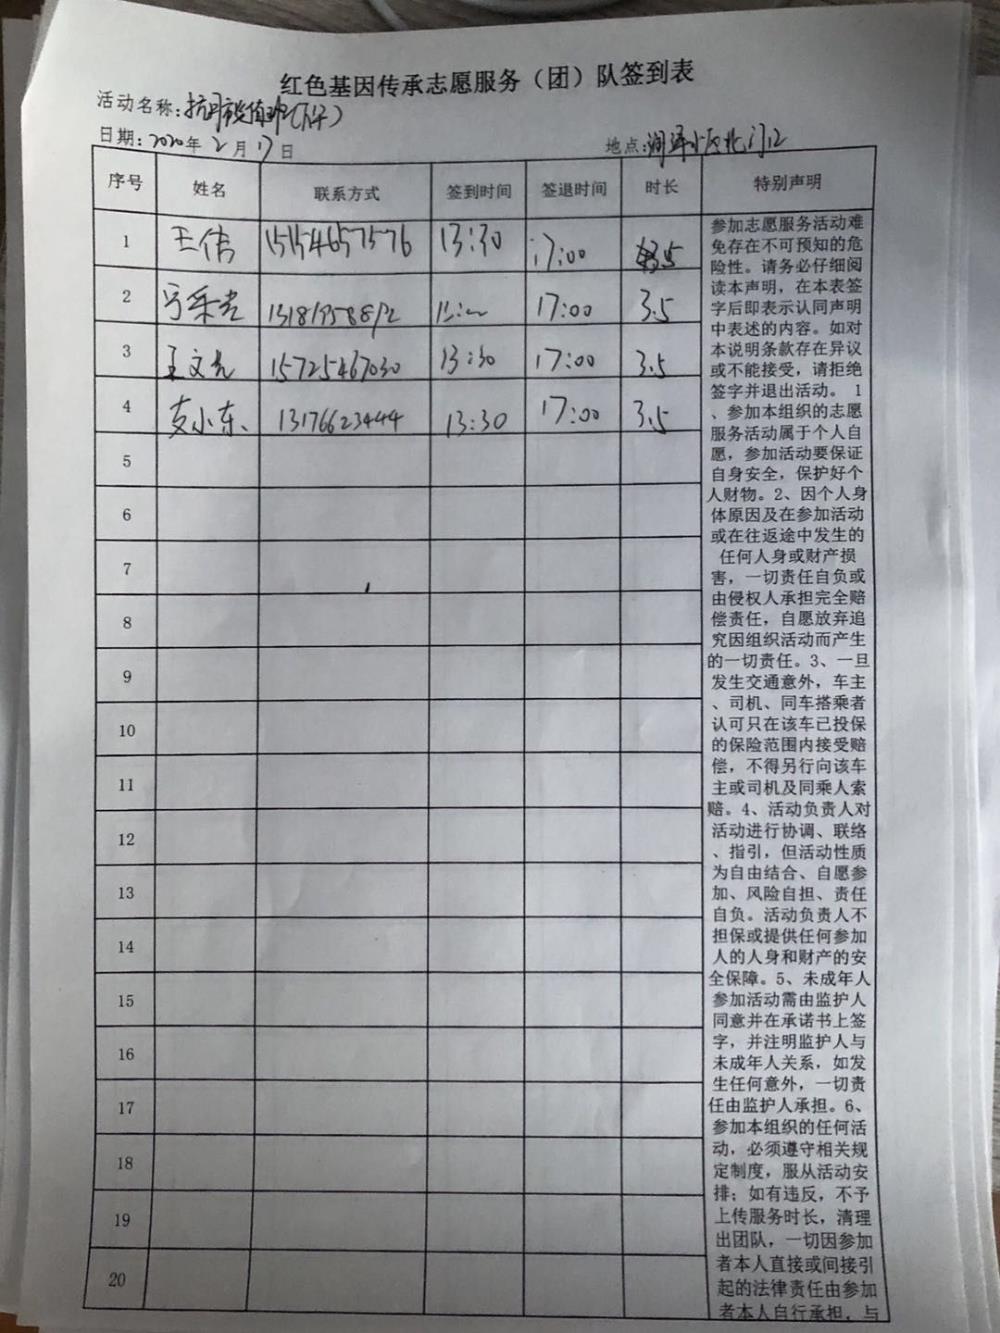 红色基因传承志愿服务（团）队签到表
活动名称：
日期：2020年2月17日 地点：
序号 姓名 联系方式 签到时间 签退时间 时长 特别声明
1 王倩 15154657576 13:30 17:00 3.5
2 17:00 3.5
3 王文光 15725467030 13:30 17:00 3.5
4 支小东 13176623444 13:30 17:00 3.5
5
6
7
8
9
10
11
12
13
14
15
16
17
18
19
20
参加志愿服务活动难
免存在不可预知的危
险性。请务必仔细阅
读本声明，在本表签
字后即表示认同声明
中表述的内容。如对
本说明条款存在异议
或不能接受，请拒绝
签字并退出活动。 1
、参加本组织的志愿
服务活动属于个人自
愿，参加活动要保证
自身安全，保护好个
人财物。2、因个人身
体原因及在参加活动
或在往返途中发生的
任何人身或财产损
害，一切责任自负或
由侵权人承担完全赔
偿责任，自愿放弃追
究因组织活动而产生
的一切责任。3、一旦
发生交通意外，车主
、司机、同车搭乘者
认可只在该车已投保
的保险范围内接受赔
偿，不得另行向该车
主或司机及同乘人索
赔。4、活动负责人对
活动进行协调、联络
、指引，但活动性质
为自由结合、自愿参
加、风险自担、责任
自负。活动负责人不
担保或提供任何参加
人的人身和财产的安
全保障。5、未成年人
参加活动需由监护人
同意并在承诺书上签
字，并注明监护人与
未成年人关系，如发
生任何意外，一切责
任由监护人承担。6、
参加本组织的任何活
动，必须遵守相关规
定制度，服从活动安
排；如有违反，不予
上传服务时长，清理
出团队，一切因参加
者本人直接或间接引
起的法律责任由参加
者本人自行承担，与